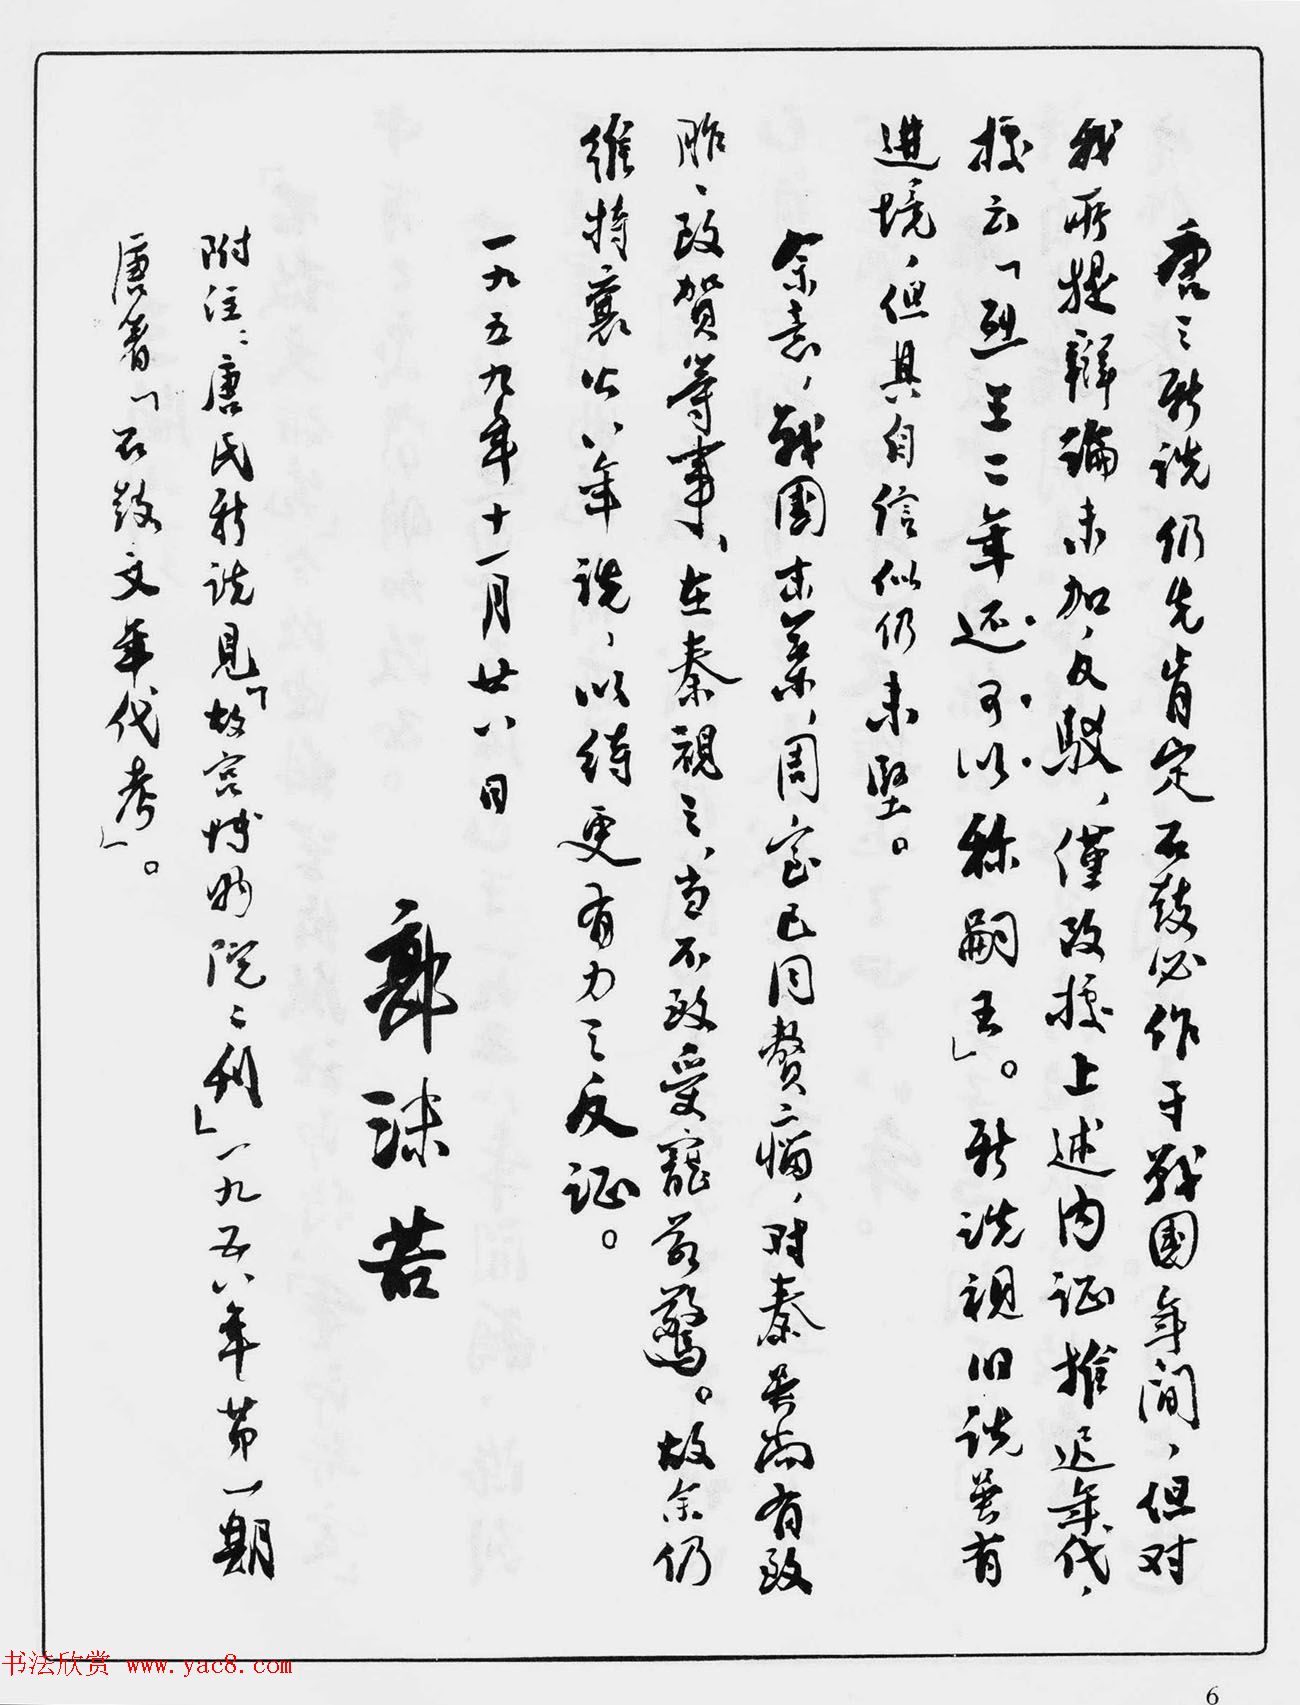 唐之新说仍先肯定石鼓必作于战国年间，但对
我所提辩论未加反驳，仅改据上述内证推迟年代，
据云「烈王二年还可以称嗣王」。新说视旧说虽有
进境，但其自信似仍未坚。
余意，战国末叶，周室已同赘瘤，对秦虽尚有致
胙、致贺等事，在秦视之，当不致受宠若惊。故余仍
维持襄公八年说，以待更有力之反证。
一九五九年十一月廿八日
郭沫若
附注：唐氏新说见「故宫博物院：刊」一九五八年第一期
唐著「石鼓文年代考」。
书法欣赏 www.yac8.com
6